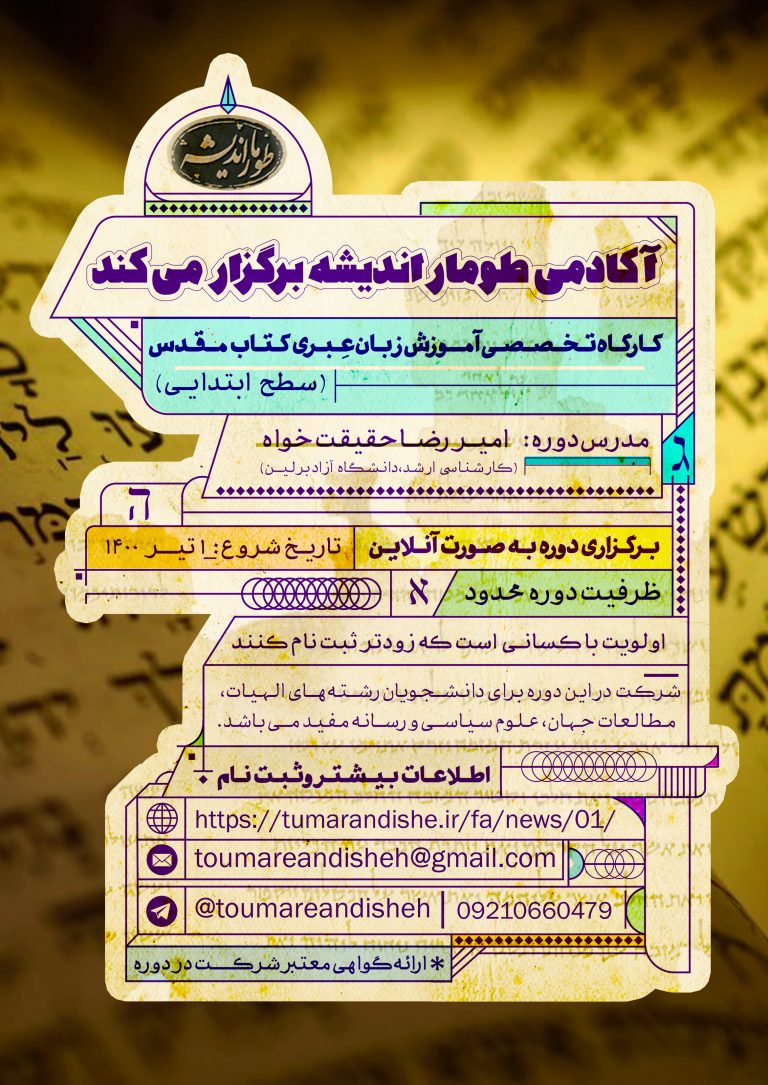 طومار اندیشه
آکادمی طومار اندیشه برگزار می کند
کارگاه تخصصی آموزش زبان عِبری کتاب مقدس
(سطح ابتدایی)
مدرس دوره: امیررضا حقیقت خواه
(کارشناسی ارشد،دانشگاه آزاد برلین)
ג
ה
برگزاری دوره به صورت آنلاین
تاریخ شروع: ۱ تیر ۱۴۰۰
ظرفیت دوره محدود
א
اولویت با کسانی است که زودتر ثبت نام کنند
شرکت در این دوره برای دانشجویان رشته های الهیات،
مطالعات جهان، علوم سیاسی و رسانه مفید می باشد.
اطلاعات بیشتر و ثبت نام :
https://tumarandishe.ir/fa/news/01/
toumareandisheh@gmail.com
@toumareandisheh | 09210660479
* ارائه گواهی معتبر شرکت در دوره